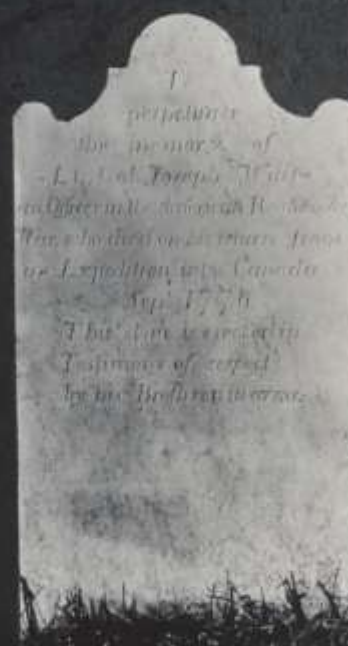 perpetuate
the memory of
Lt. Col. Joseph Waite
an Officer in the
War, who died on his return from
an Expedition into Canada
Sepr. 1776
This stone is erected in
Testimony of respect
by his Brethren in arms.